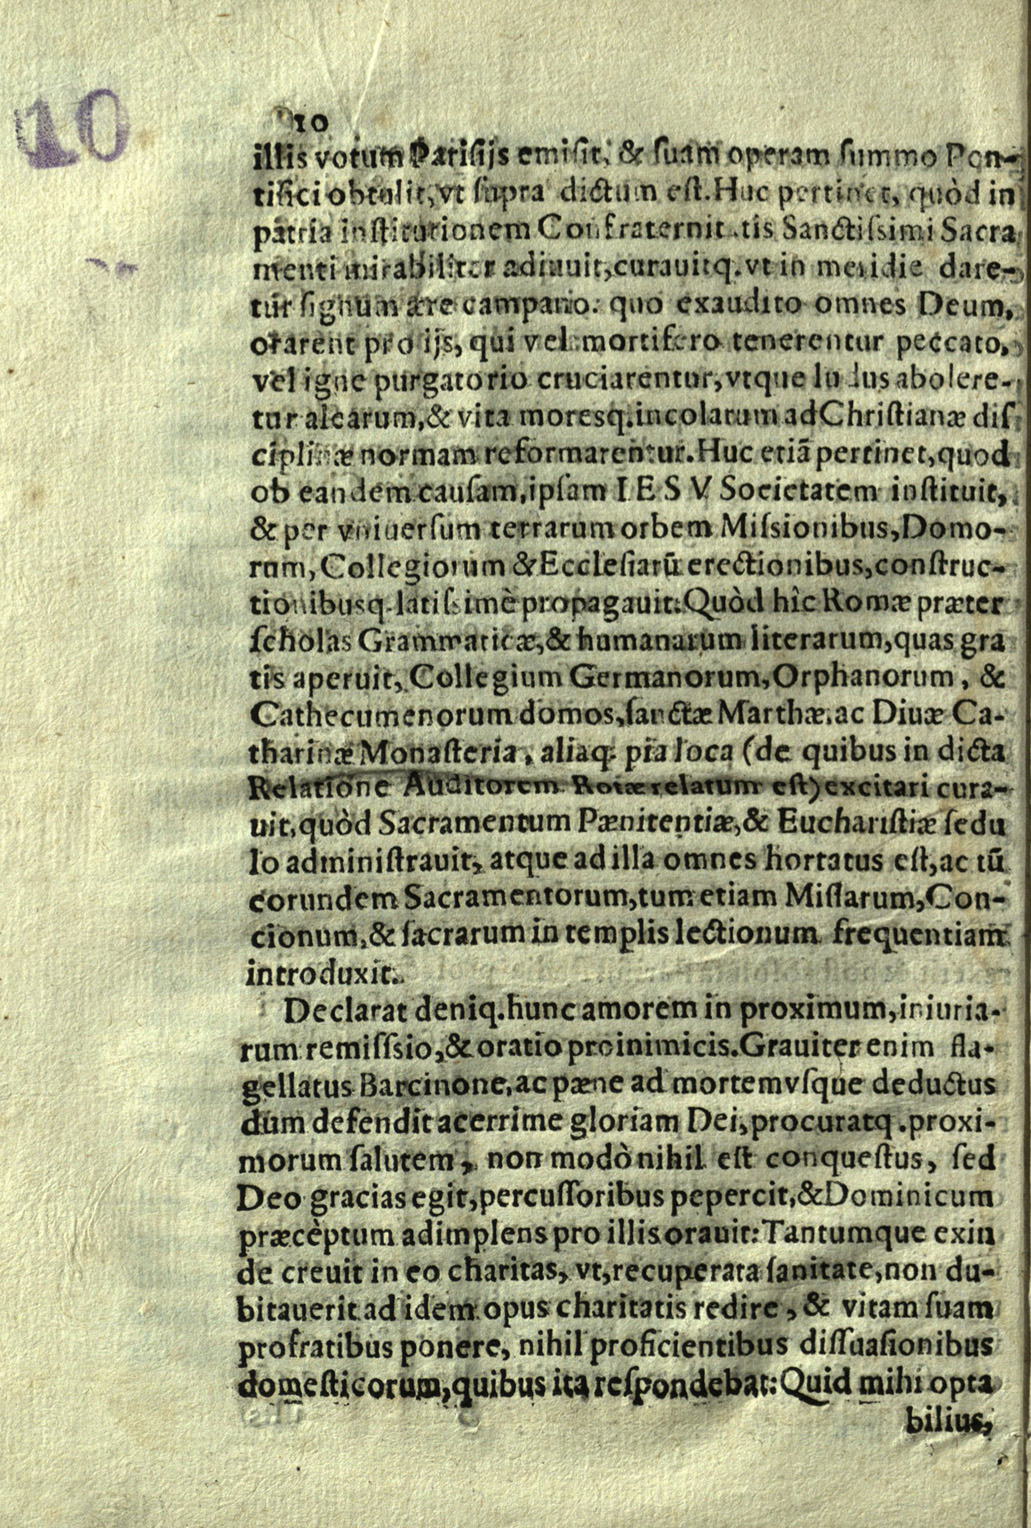 10
10
illis votum Parisijs emisit, & ſuam operam ſummo Pon-
tifici obtulit, vt ſupra dictum eſt. Huc pertinet, quòd in
patria inſtitutionem Confraternitatis Sanctiſsimi Sacra
menti mirabiliter adiuuit, curauitq. vt in meridie dare-
tur ſignum ære campano: quo exaudito omnes Deum,
orarent pro ijs, qui vel mortifero tenerentur peccato,
vel igne purgatorio cruciarentur, vtque ludus abolere-
tur alearum, & vita moresq. incolarum ad Chriſtianæ diſ
ciplinæ normam reformarentur. Huc etiã pertinet, quod
ob eandem cauſam, ipſam IESV Societatem inſtituit,
& per vniuerſum terrarum orbem Miſsionibus, Domo-
rum, Collegiorum & Eccleſiarũ erectionibus, conſtruc-
tionibusq. latiſsimè propagauit: Quòd hîc Romæ præter
ſcholas Grammaticæ, & humanarum literarum, quas gra
tis aperuit, Collegium Germanorum, Orphanorum, &
Cathecumenorum domos, ſanctæ Marthæ, ac Diuæ Ca-
tharinæ Monaſteria, aliaq. pia loca (de quibus in dicta
Relatione Auditorem Rotæ relatum eſt) excitari cura-
uit, quòd Sacramentum Pænitentiæ, & Euchariſtiæ ſedu
lo adminiſtrauit, atque ad illa omnes hortatus eſt, ac tũ
eorundem Sacramentorum, tum etiam Miſſarum, Con-
cionum, & ſacrarum in templis lectionum frequentiam
introduxit.
Declarat deniq. hunc amorem in proximum, iniuria-
rum remiſſsio, & oratio pro inimicis. Grauiter enim fla-
gellatus Barcinone, ac pæne ad mortem vſque deductus
dum defendit acerrime gloriam Dei, procuratq. proxi-
morum ſalutem, non modò nihil eſt conqueſtus, ſed
Deo gracias egit, percuſſoribus pepercit, & Dominicum
præcèptum adimplens pro illis orauit: Tantumque exin
de creuit in eo charitas, vt, recuperata ſanitate, non du-
bitauerit ad idem opus charitatis redire, & vitam ſuam
pro fratibus ponere, nihil proficientibus diſſuaſionibus
domeſticorum, quibus ita reſpondebat: Quid mihi opta
bilius,